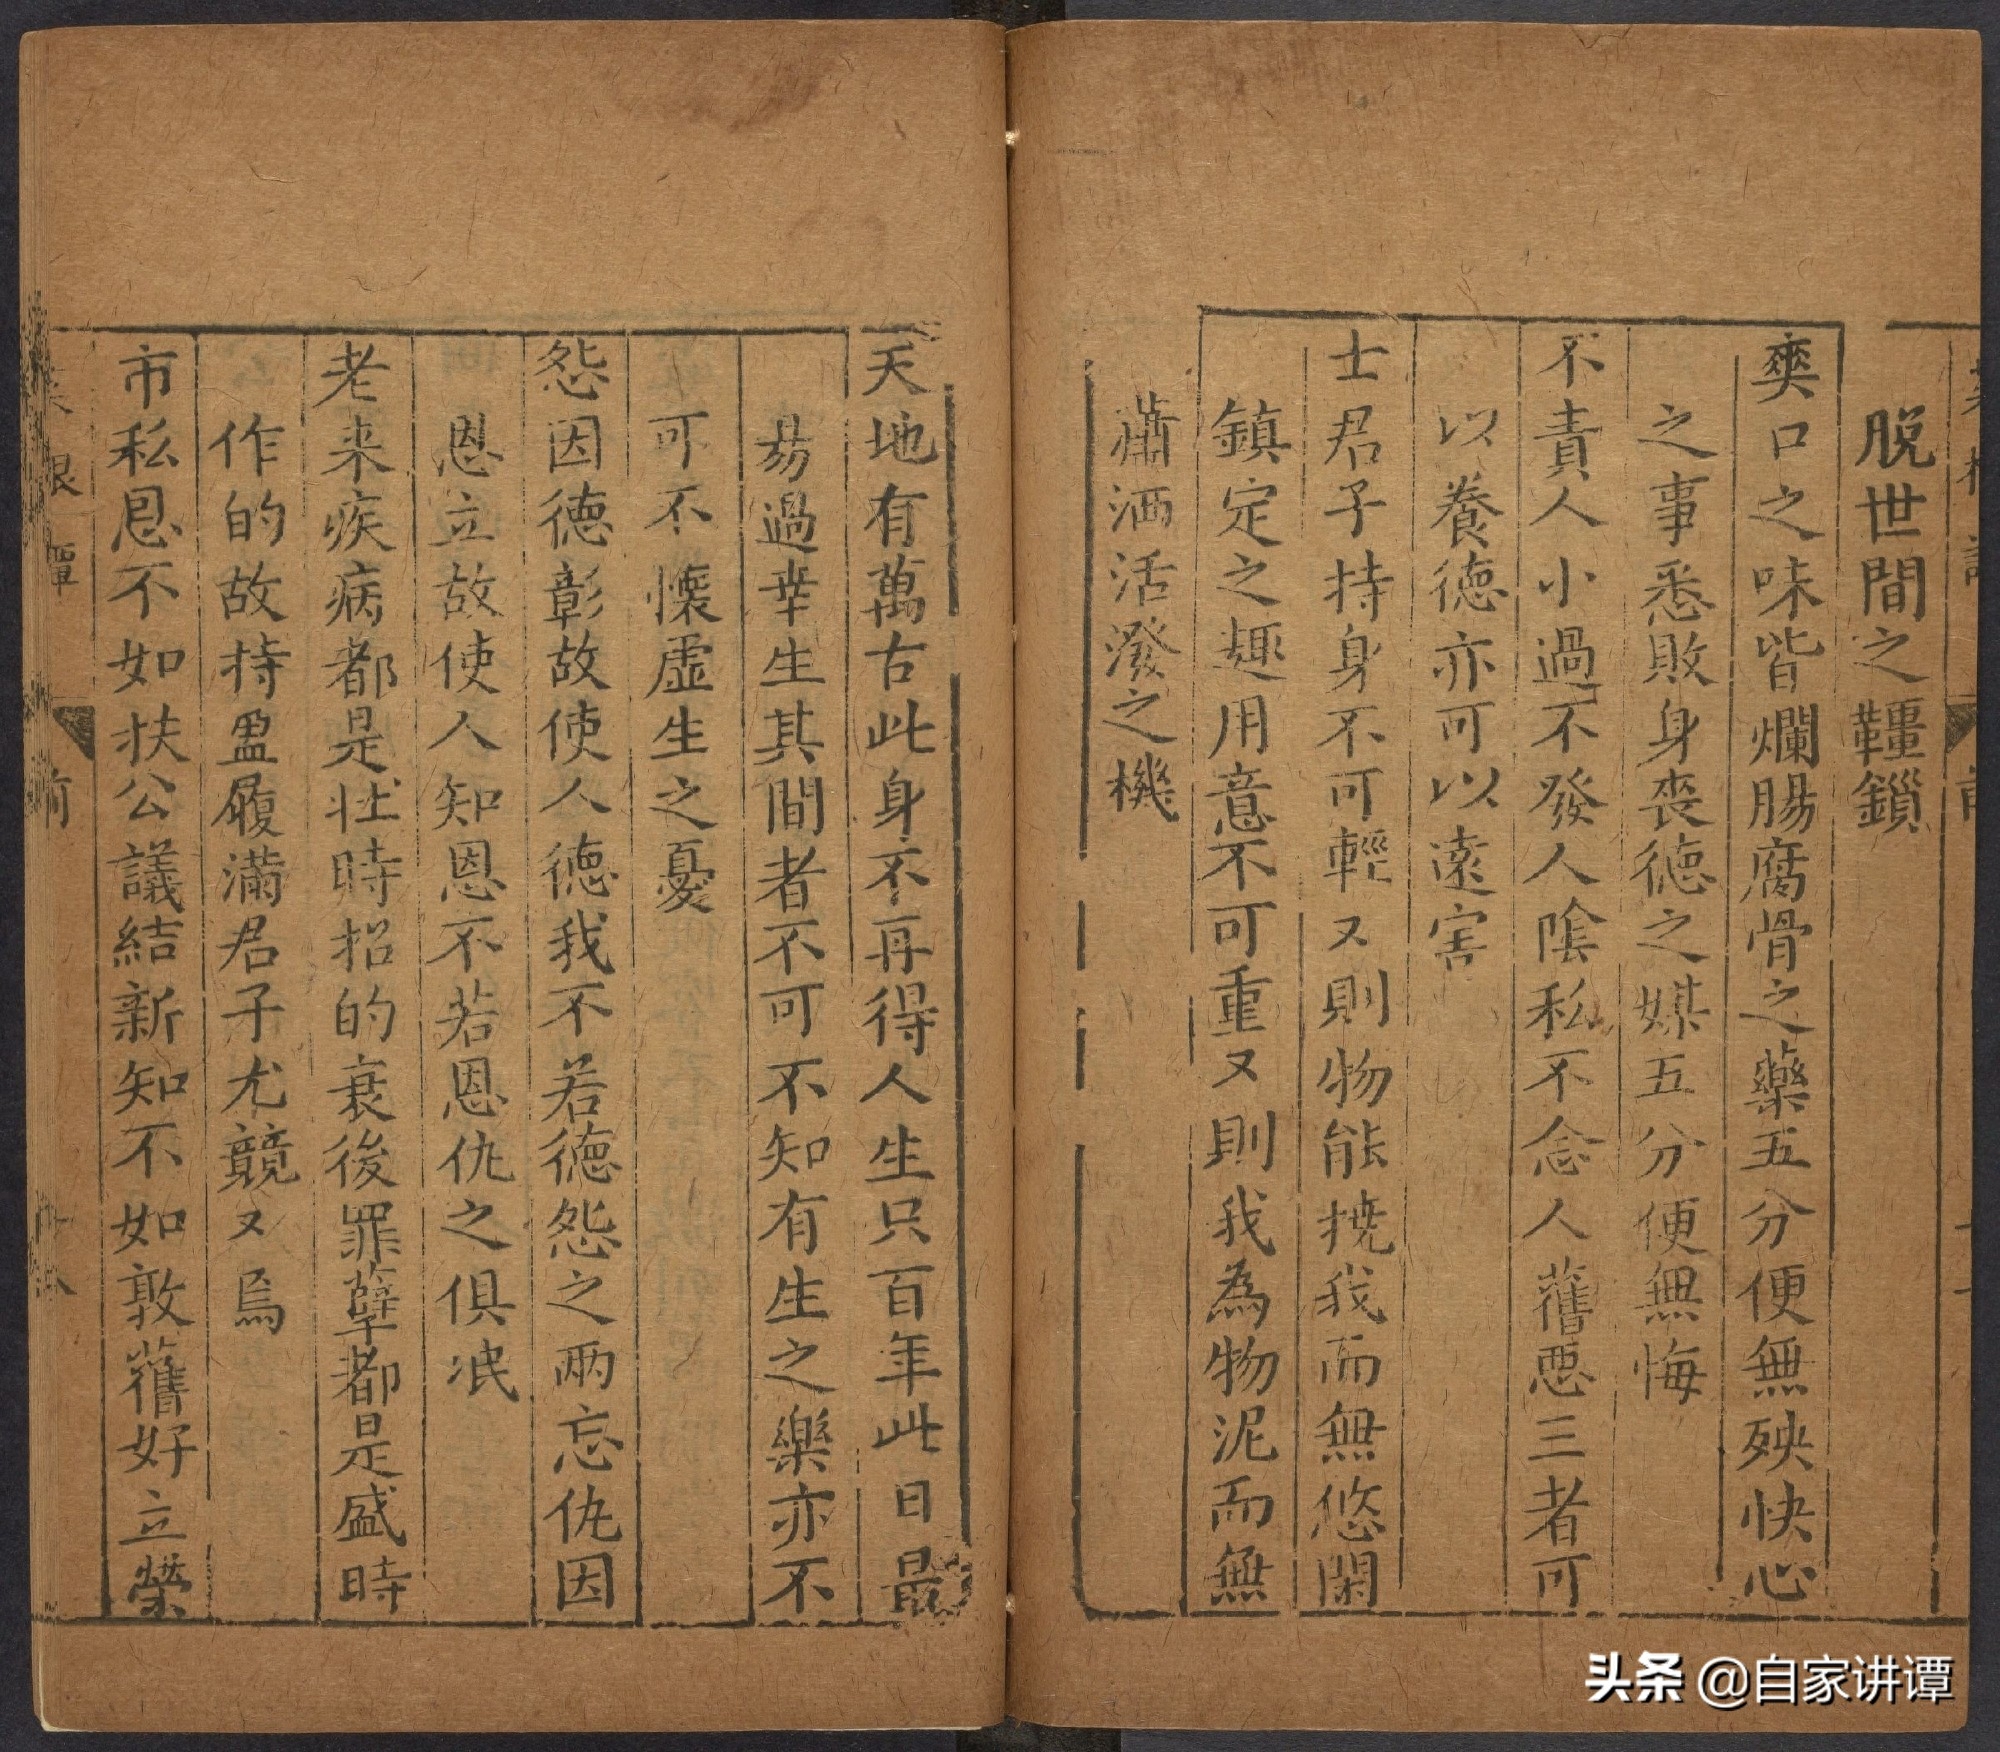 脫世間之韁鎖
爽口之味皆爛腸腐骨之藥五分便無殃快心
之事悉敗身喪德之媒五分便無悔
不責人小過不發人陰私不念人舊惡三者可
以養德亦可以遠害
士君子持身不可輕又則物能撓我而無悠閑
鎮定之趣用意不可重又則我為物泥而無
蕭洒活潑之機
天地有萬古此身不再得人生只百年此日最
易過幸生其間者不可不知有生之樂亦不
可不懷虛生之憂
怨因德彰故使人德我不若德怨之兩忘仇因
恩立故使人知恩不若恩仇之俱泯
老来疾病都是壯時招的衰後罪孽都是盛時
作的故持盈履滿君子尤競又焉
市私恩不如扶公議結新知不如敦舊好立榮
头条 @自家讲谭